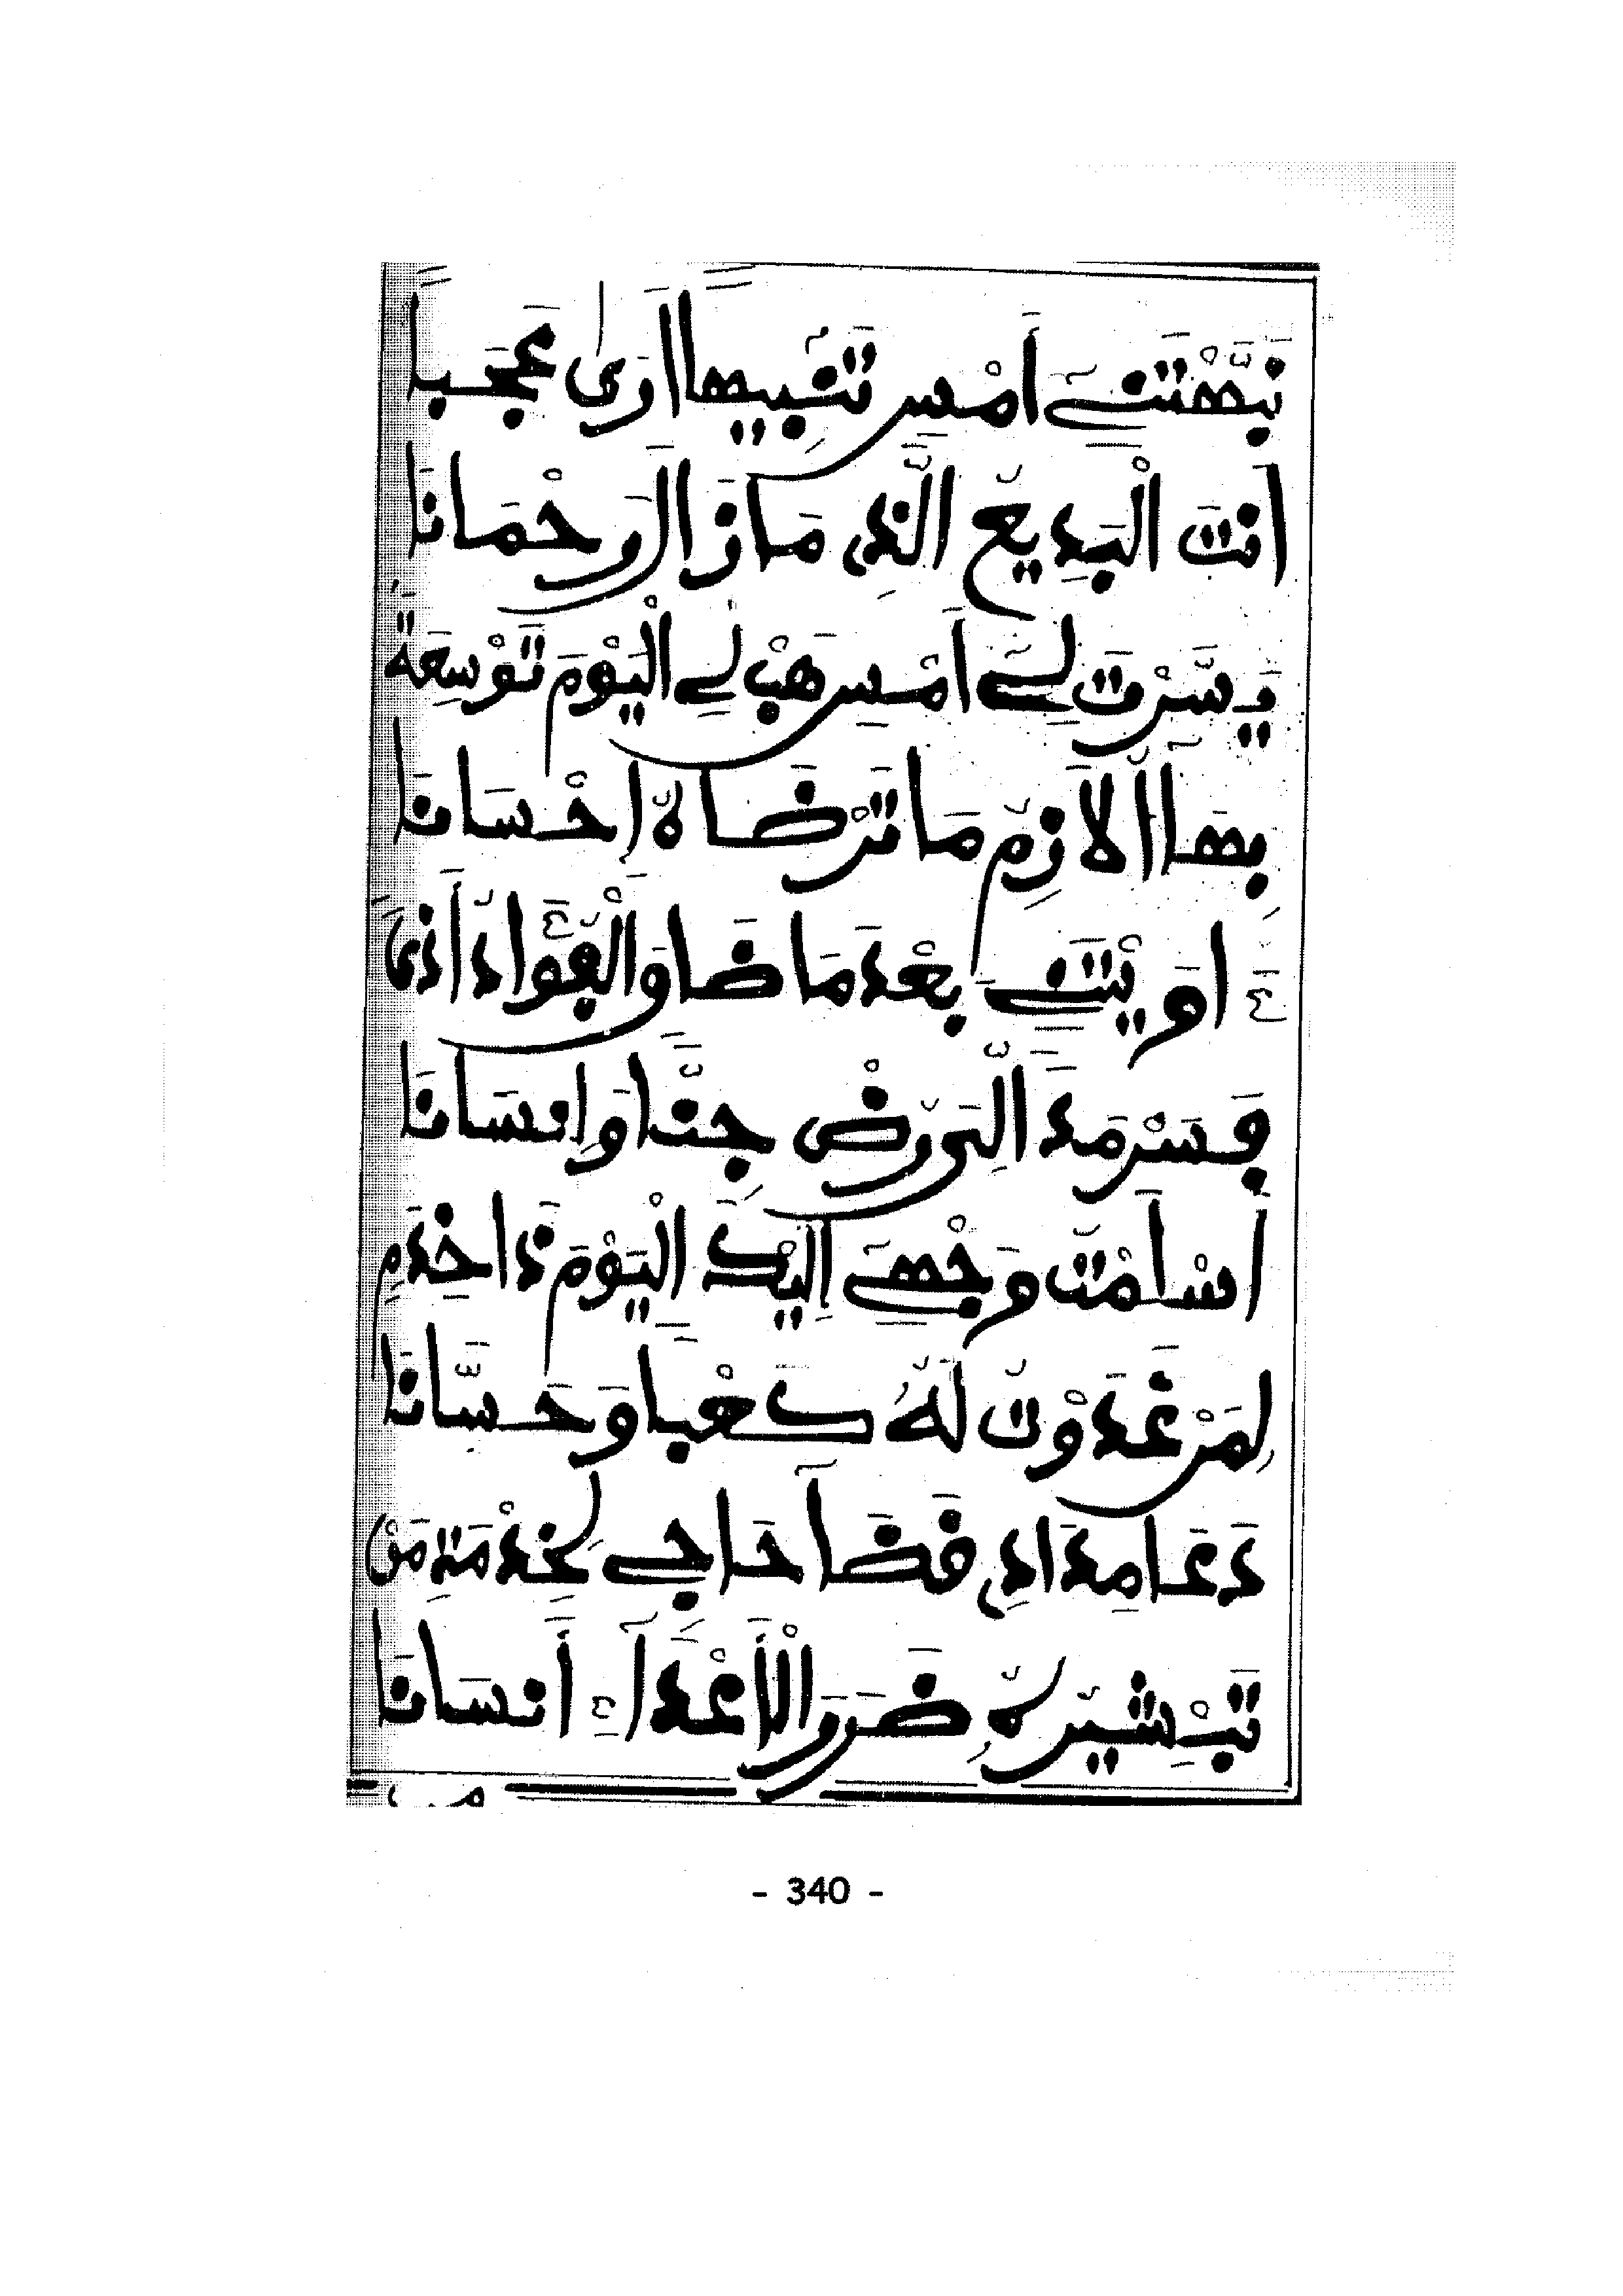 نَبَّهْتَنِے أَمْسِ تَنْبِيهًا أَرَىٰ عَجَبًا
أَنتَ الْبَدِيعُ الَّذِے مَا زَالَ رَحْمَانَا
يَسَّرْتَ لِے أَمْسِ هَبْ لِے الْيَوْمَ تَوْسِعَةً
بِهَا أُلَازِمُ مَا تَرْضَاهُ إِحْسَانَا
ءَاوَيْتَنِے بَعْدَمَا ضَاوَ الْفُؤَادُ أَذًى
فِسَرْمَدَ الَّتِے رُضْ جِنًّا وَإِنسَانَا
أَسْلَمْتُ وَجْهِے إِلَيْكَ الْيَوْمَ ذَا خِدَمِ
لِمَنْ غَدَوْتُ لَهُ كَعْبًا وَحَسَّانَا
دَعَا مِدَادِے فَضَا حَاجِے لِخِدْمَةِ مَنْ
تَبْشِيرُهُ ضَرَرَ الْأَعْدَآءِ أَنسَانَا
- 340 -